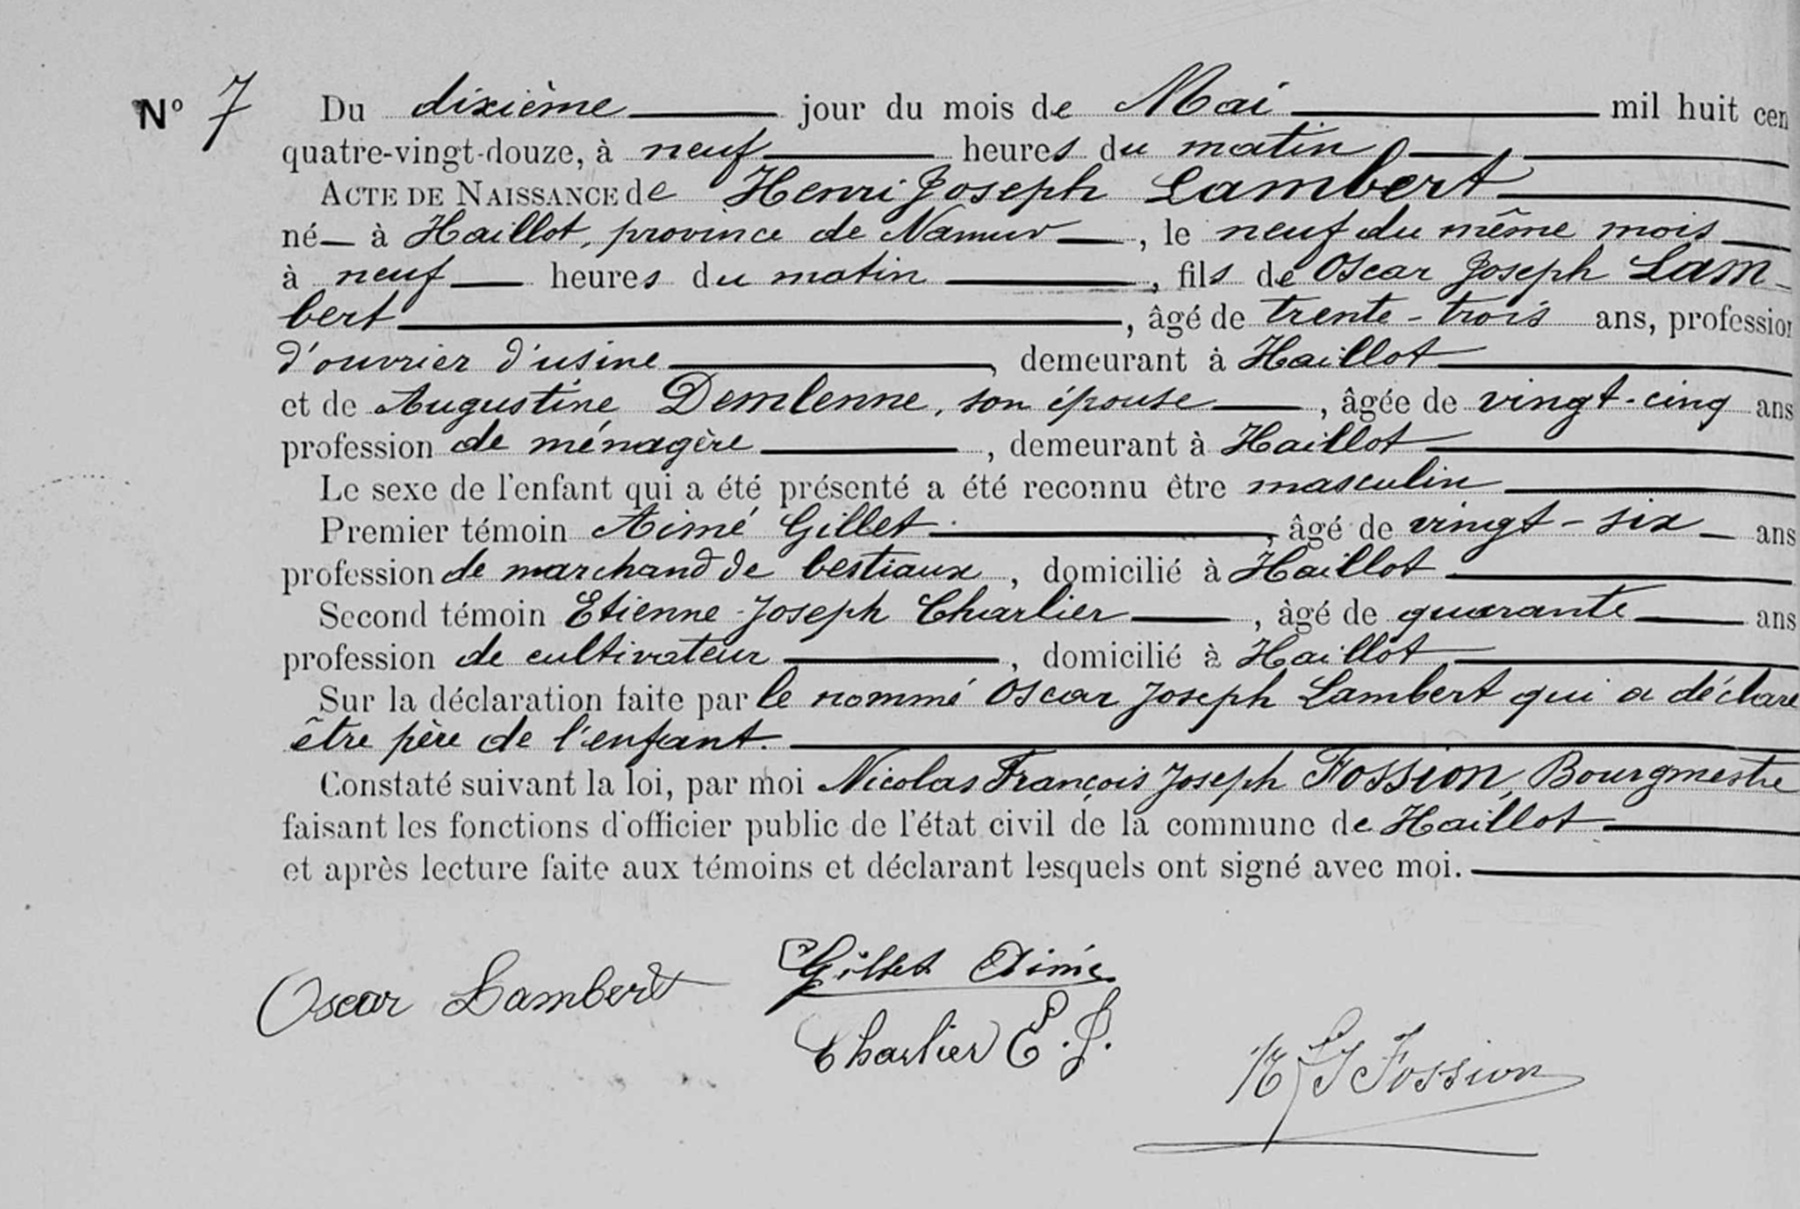 N° 7 Du dixième jour du mois de Mai mil huit cen
quatre-vingt-douze, à neuf heures du matin
ACTE DE NAISSANCE de Henri Joseph Lambert
né à Haillot, province de Namur, le neuf du même mois
à neuf heures du matin, fils de Oscar Joseph Lam-
bert, âgé de trente-trois ans, profession
d'ouvrier d'usine, demeurant à Haillot
et de Augustine Demlenne, son épouse, âgée de vingt-cinq ans
profession de ménagère, demeurant à Haillot
Le sexe de l'enfant qui a été présenté a été reconnu être masculin
Premier témoin Aimé Gillet, âgé de vingt-six ans
profession de marchand de bestiaux, domicilié à Haillot
Second témoin Etienne-Joseph Charlier, âgé de quarante ans
profession de cultivateur, domicilié à Haillot
Sur la déclaration faite par le nommé Oscar Joseph Lambert qui a déclaré
être père de l'enfant.
Constaté suivant la loi, par moi Nicolas François Joseph Fossion, Bourgmestre
faisant les fonctions d'officier public de l'état civil de la commune de Haillot
et après lecture faite aux témoins et déclarant lesquels ont signé avec moi.
Oscar Lambert
Gillet Aimé
Charlier E. J.
N F J Fossion